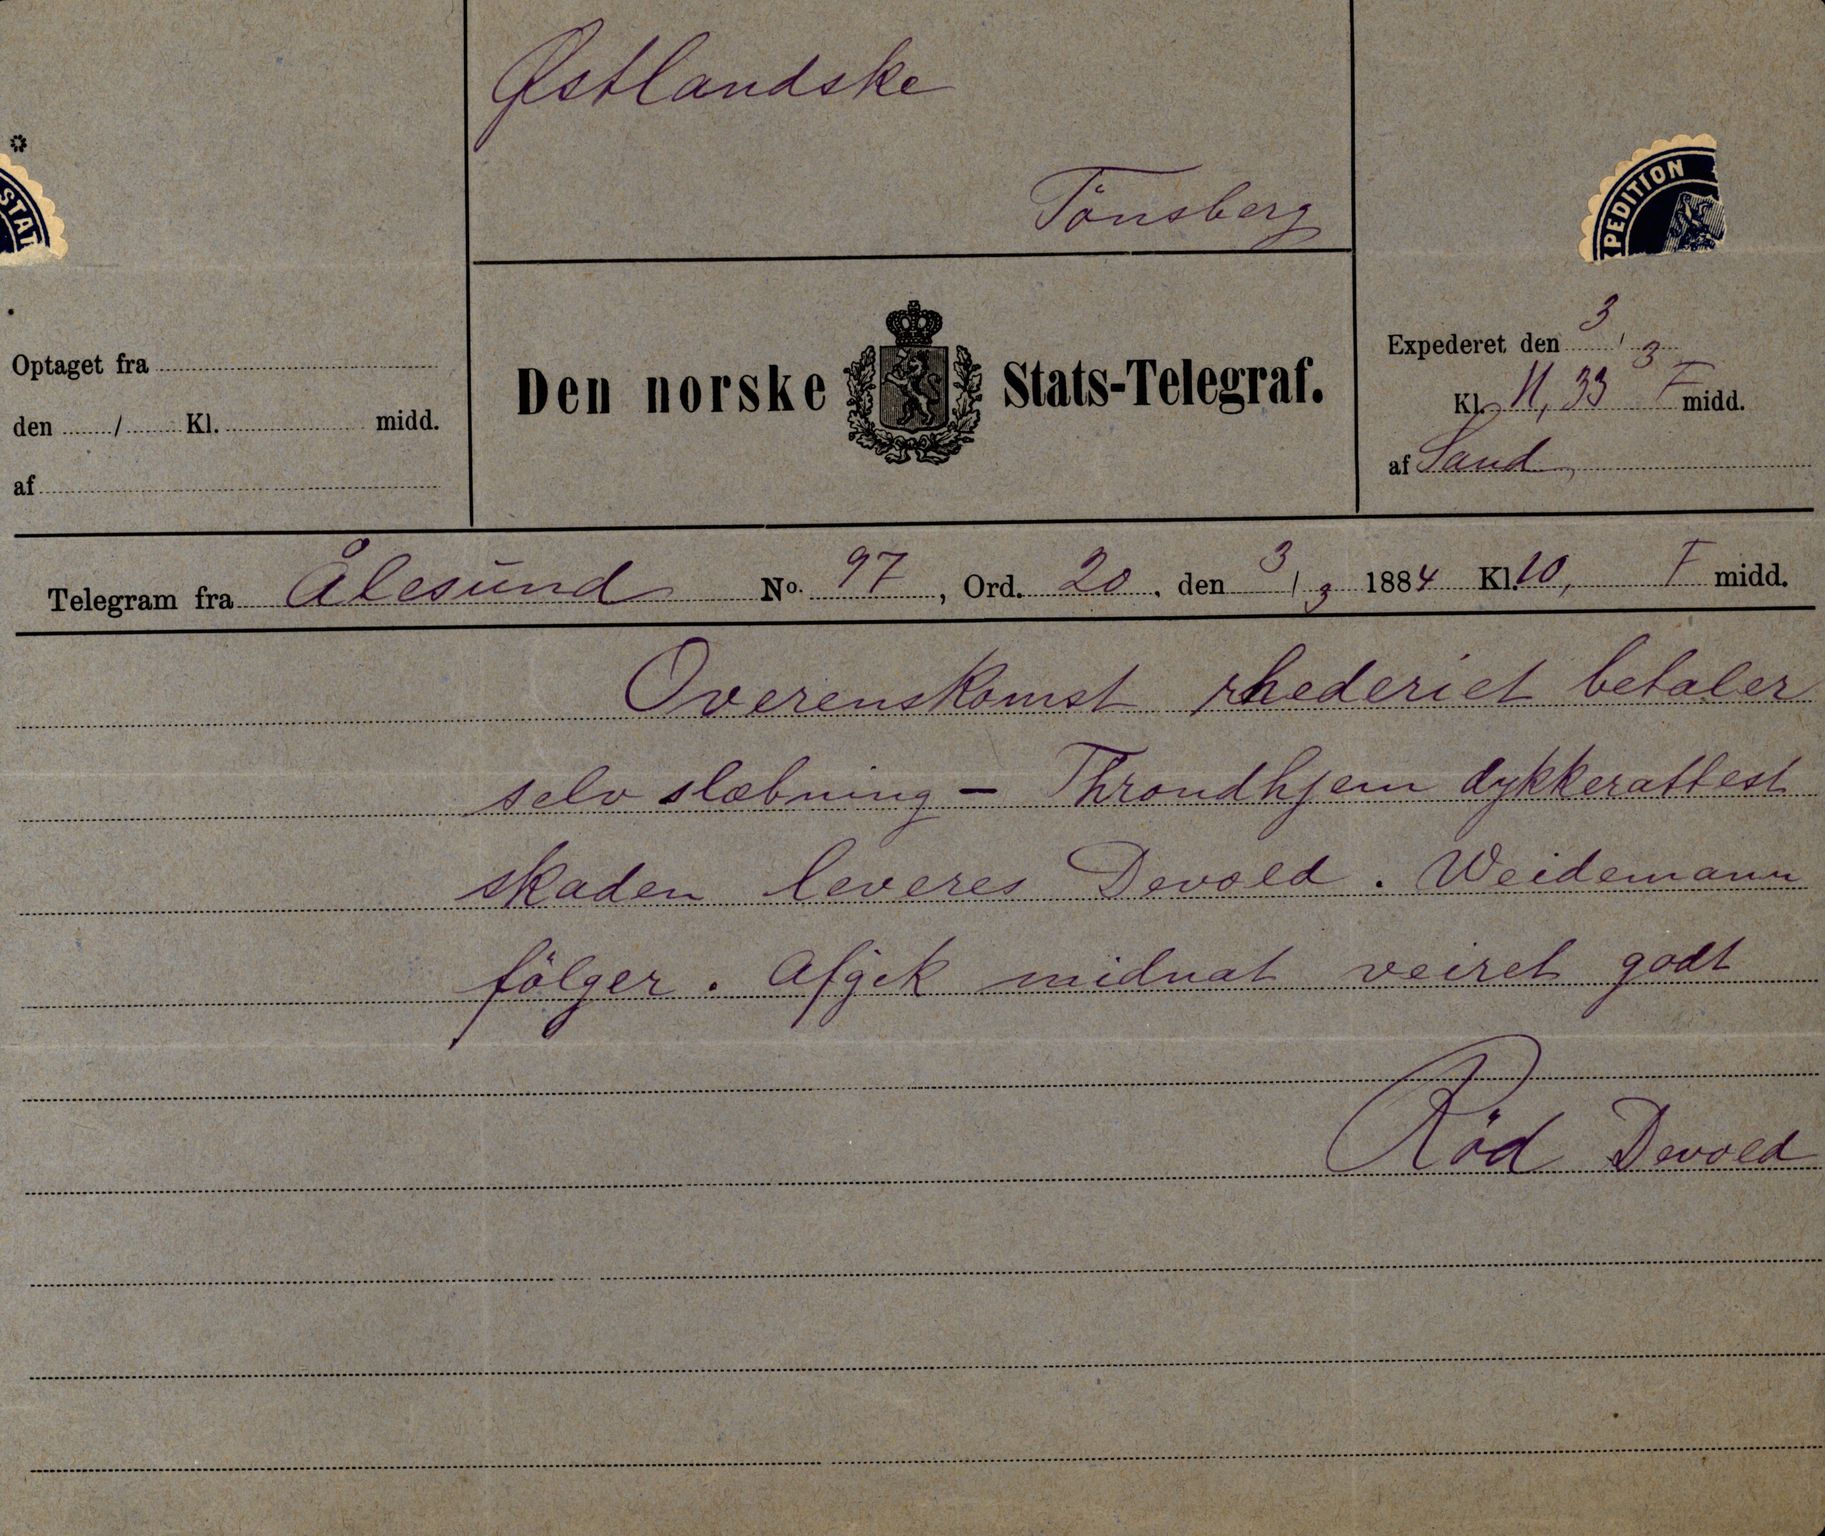 Østlandske
Tönsberg
STAT
PEDITION
Optaget fra
den / Kl. midd.
af
Den norske Stats-Telegraf.
Expederet den 3/3
Kl. 11,33 F midd.
af Sand
Telegram fra Ålesund No. 97, Ord. 20, den 3/3 1884 Kl. 10, F midd.
Overenskomst rhederiet betaler
selv slæbning – Throndhjem dykkerattest
skaden leveres Devold. Weidemann
fölger. Afgik midnat veiret godt
Röd Devold